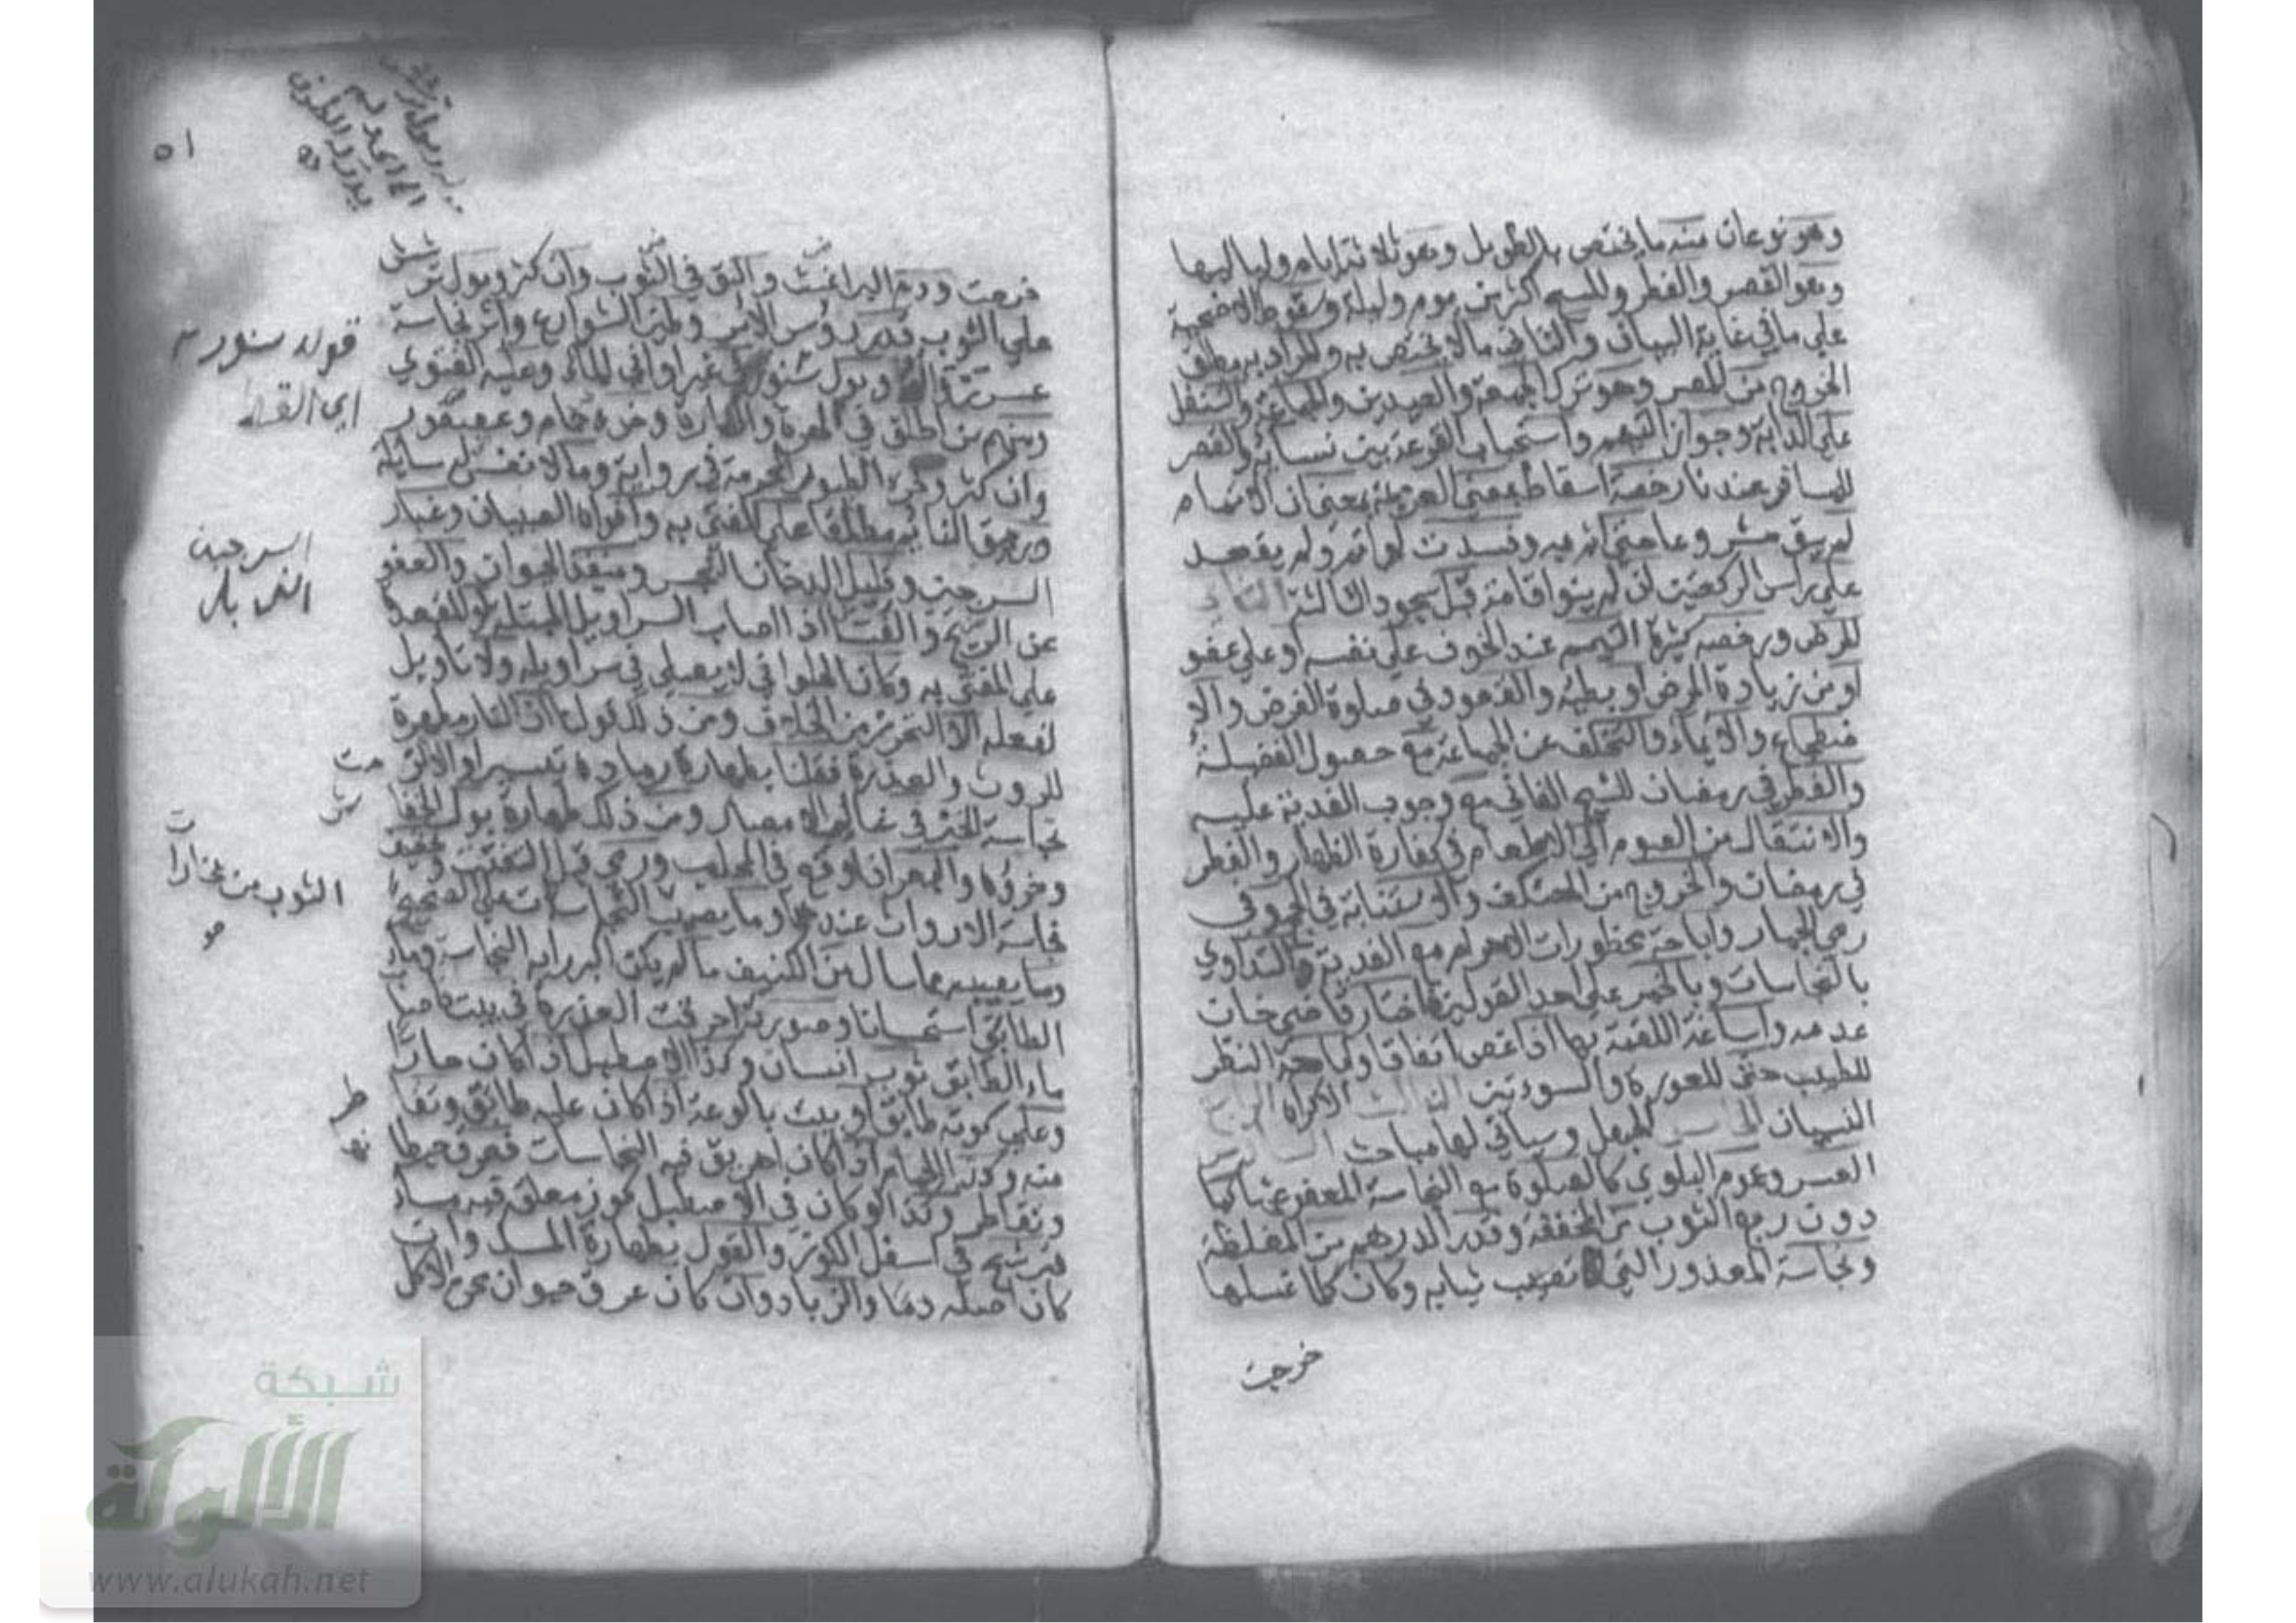 وهو نوعان منه ما يختص بالطويل وهو ثلاثة ايام ولياليها
وهو القصر والفطر والمسح اكثر من يوم وليلة وسقوط الاضحية
علي ما في غاية البيان والثاني ما لا يختص به والمراد به مطلق
الخروج من المصر وهو ترك الجمعة والعيدين والجماعة والتنفل
علي الدابة وجواز التيمم واستحباب القرعة بين نسائه والقصر
للمسافر عندنا رخصة اسقاط بمعني العزيمة بمعني ان الاتمام
لم يبق مشروعا حتي اثم به وفسدت لو اتم ولم يقعد
علي راس الركعتين ان لم ينو اقامة قبل سجود الثالثة الثاني
المرض ورخصه كثيرة التيمم عند الخوف علي نفسه او علي عضو
او من زيادة المرض او بطئه والقعود في صلوة الفرض والا
ضطجاع والايماء والتخلف عن الجماعة مع حصول الفضيلة
والفطر في رمضان للشيخ الفاني مع وجوب الفدية عليه
والانتقال من الصوم الي الاطعام في كفارة الظهار والفطر
في رمضان والخروج من المعتكف والاستنابة في الحج وفي
رمي الجمار واباحة محظورات الاحرام مع الفدية والتداوي
بالنجاسات وبالخمر علي احد القولين واختار قاضي خان
عدمه واساغة اللقمة بها اذا غص اتفاقا واباحة النظر
للطبيب حتي للعورة والسوءتين الثالث الاكراه الرابع
النسيان الخامس الجهل وسياتي لها مباحث السادس
العسر وعموم البلوي كالصلوة مع النجاسة المعفو عنها كما
دون ربع الثوب من المخففة وقدر الدرهم من المغلظة
ونجاسة المعذور التي تصيب ثيابه وكان كلما غسلها
خرجت
٥١
خرجت ودم البراغيث والبق في الثوب وان كثر وبول ترشش
علي الثوب قدر رؤس الابر وطين الشوارع واثر نجاسة
عسر زواله وبول سنور في غير اواني الماء وعليه الفتوي
ومنهم من اطلق في الهرة والفارة وخرء حمام وعصفور
وان كثر وخرء الطيور المحرمة في رواية وما لا نفس له سائلة
وريق النائم مطلقا علي المفتي به وافواه الصبيان وغبار
السرجين وقليل الدخان النجس ومنفذ الحيوان والعفو
عن الريح والفسا اذا اصاب السراويل المبتلة والمقعدة
علي المفتي به وكان الحلواني لا يصلي في سراويله ولا تاويل
لفعله الا التحرز من الخلاف ومن ذلك قولنا ان النار مطهرة
للروث والعذرة فقلنا بطهارة رمادهما تيسيرا والا لزم
نجاسة الخبز في غالب الامصار ومن ذلك طهارة بول الخفاش
وخرؤه والبعر اذا وقع في المحلب ورمي قبل التفتت وتخفيف
نجاسة الارواث عندهما وما يصيب الثوب من بخارات النجاسة علي الصحيح
وما يصيبه مما سال من الكنيف ما لم يكن اكبر رايه النجاسة وماء
الطابق استحسانا وصورته احرقت العذرة في بيت فاصاب
ماء الطابق ثوب انسان وكذا الاصطبل اذا كان حارا
وعلي كوته طابق او بيت بالوعة اذا كان عليه طابق وتقاطر
منه وكذا الحمام اذا كان اهريق فيه النجاسات فعرق حيطانها
وتقاطر وكذا لو كان في الاصطبل كوز معلق فيه ماء
فترشح في اسفل الكوز والقول بطهارة المسك وان
كان اصله دما والزباد وان كان عرق حيوان محرم الاكل
قوله سنور
السرجين
الثوب من بخارات
شبكة
الألوكة
www.alukah.net